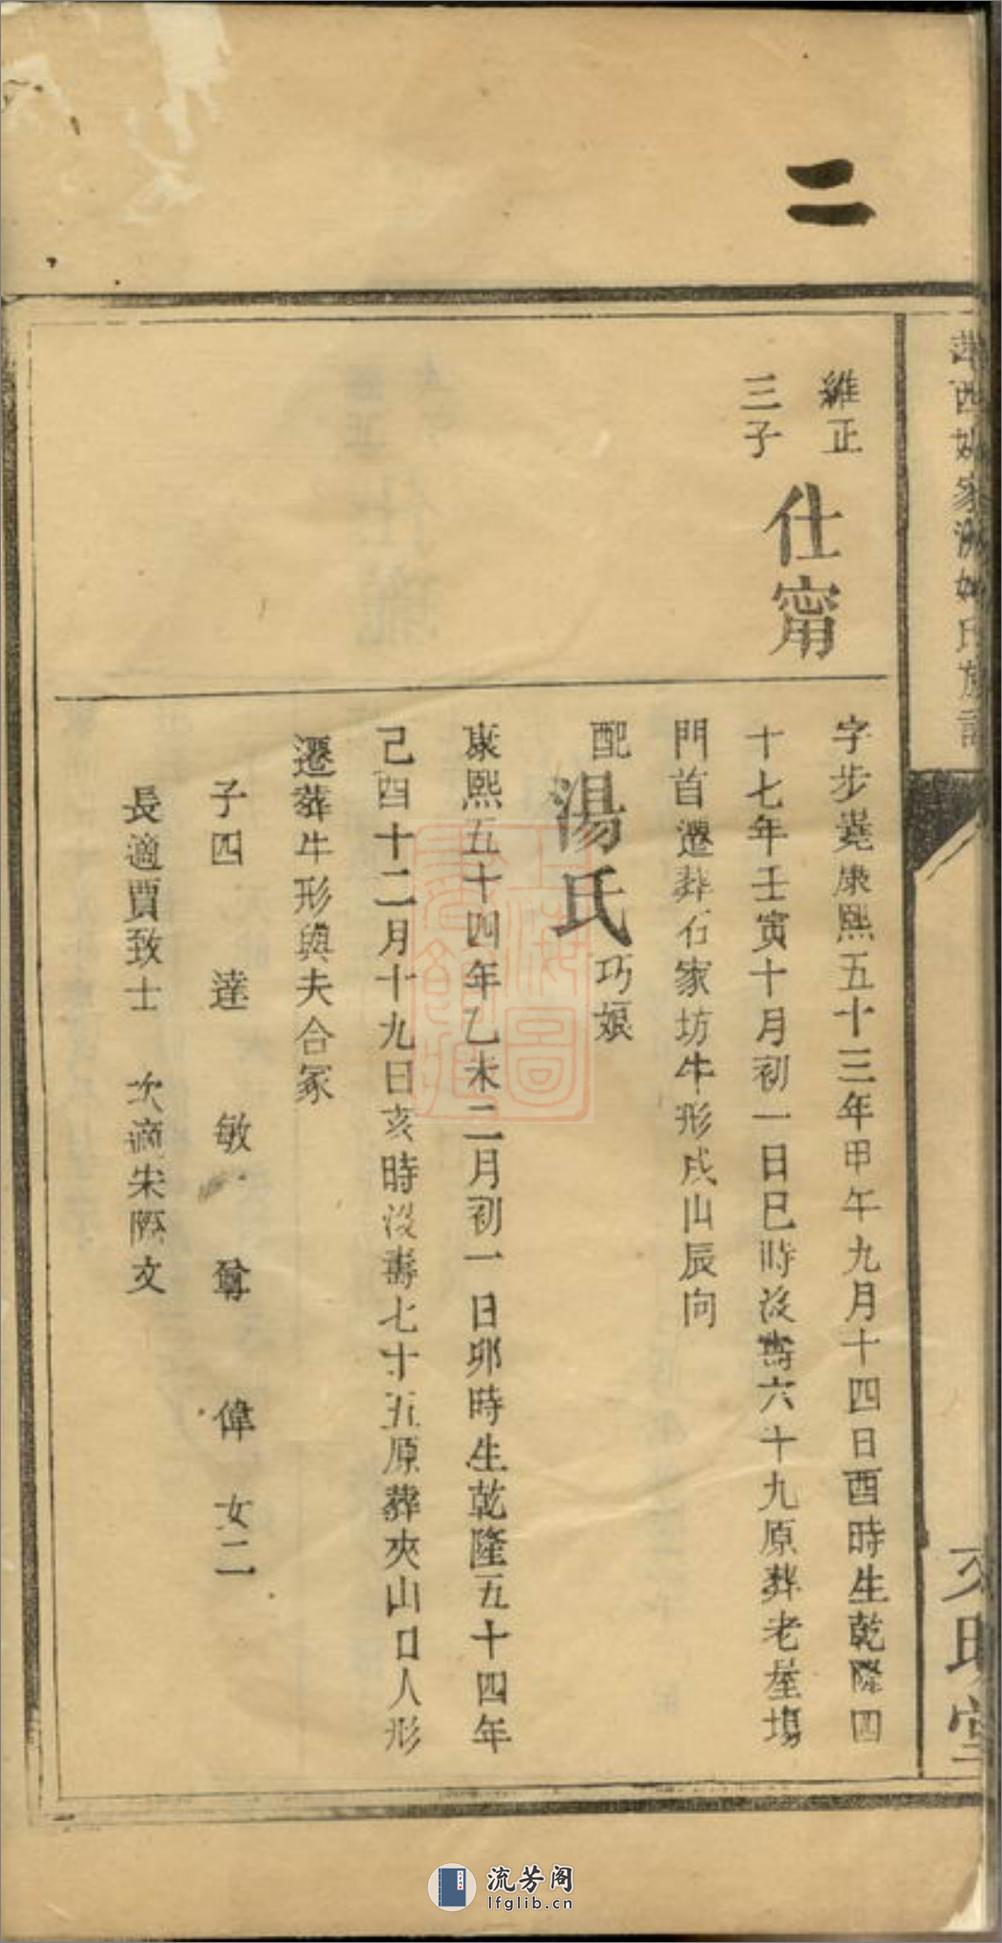 二
維正
三子
仕甯
字步堯康熙五十三年甲午九月十四日酉時生乾隆四
十七年壬寅十月初一日巳時沒壽六十九原葬老屋塲
門首遷葬石家坊牛形戌山辰向
配湯氏巧娘
康熙五十四年乙未二月初一日卯時生乾隆五十四年
己酉十二月十九日亥時沒壽七十五原葬夾山口人形
遷葬牛形與夫合冢
子四 達 敏 尊 偉 女二
長適賈致士 次適朱際文
上海圖
書館藏
流芳阁
lfglib.cn